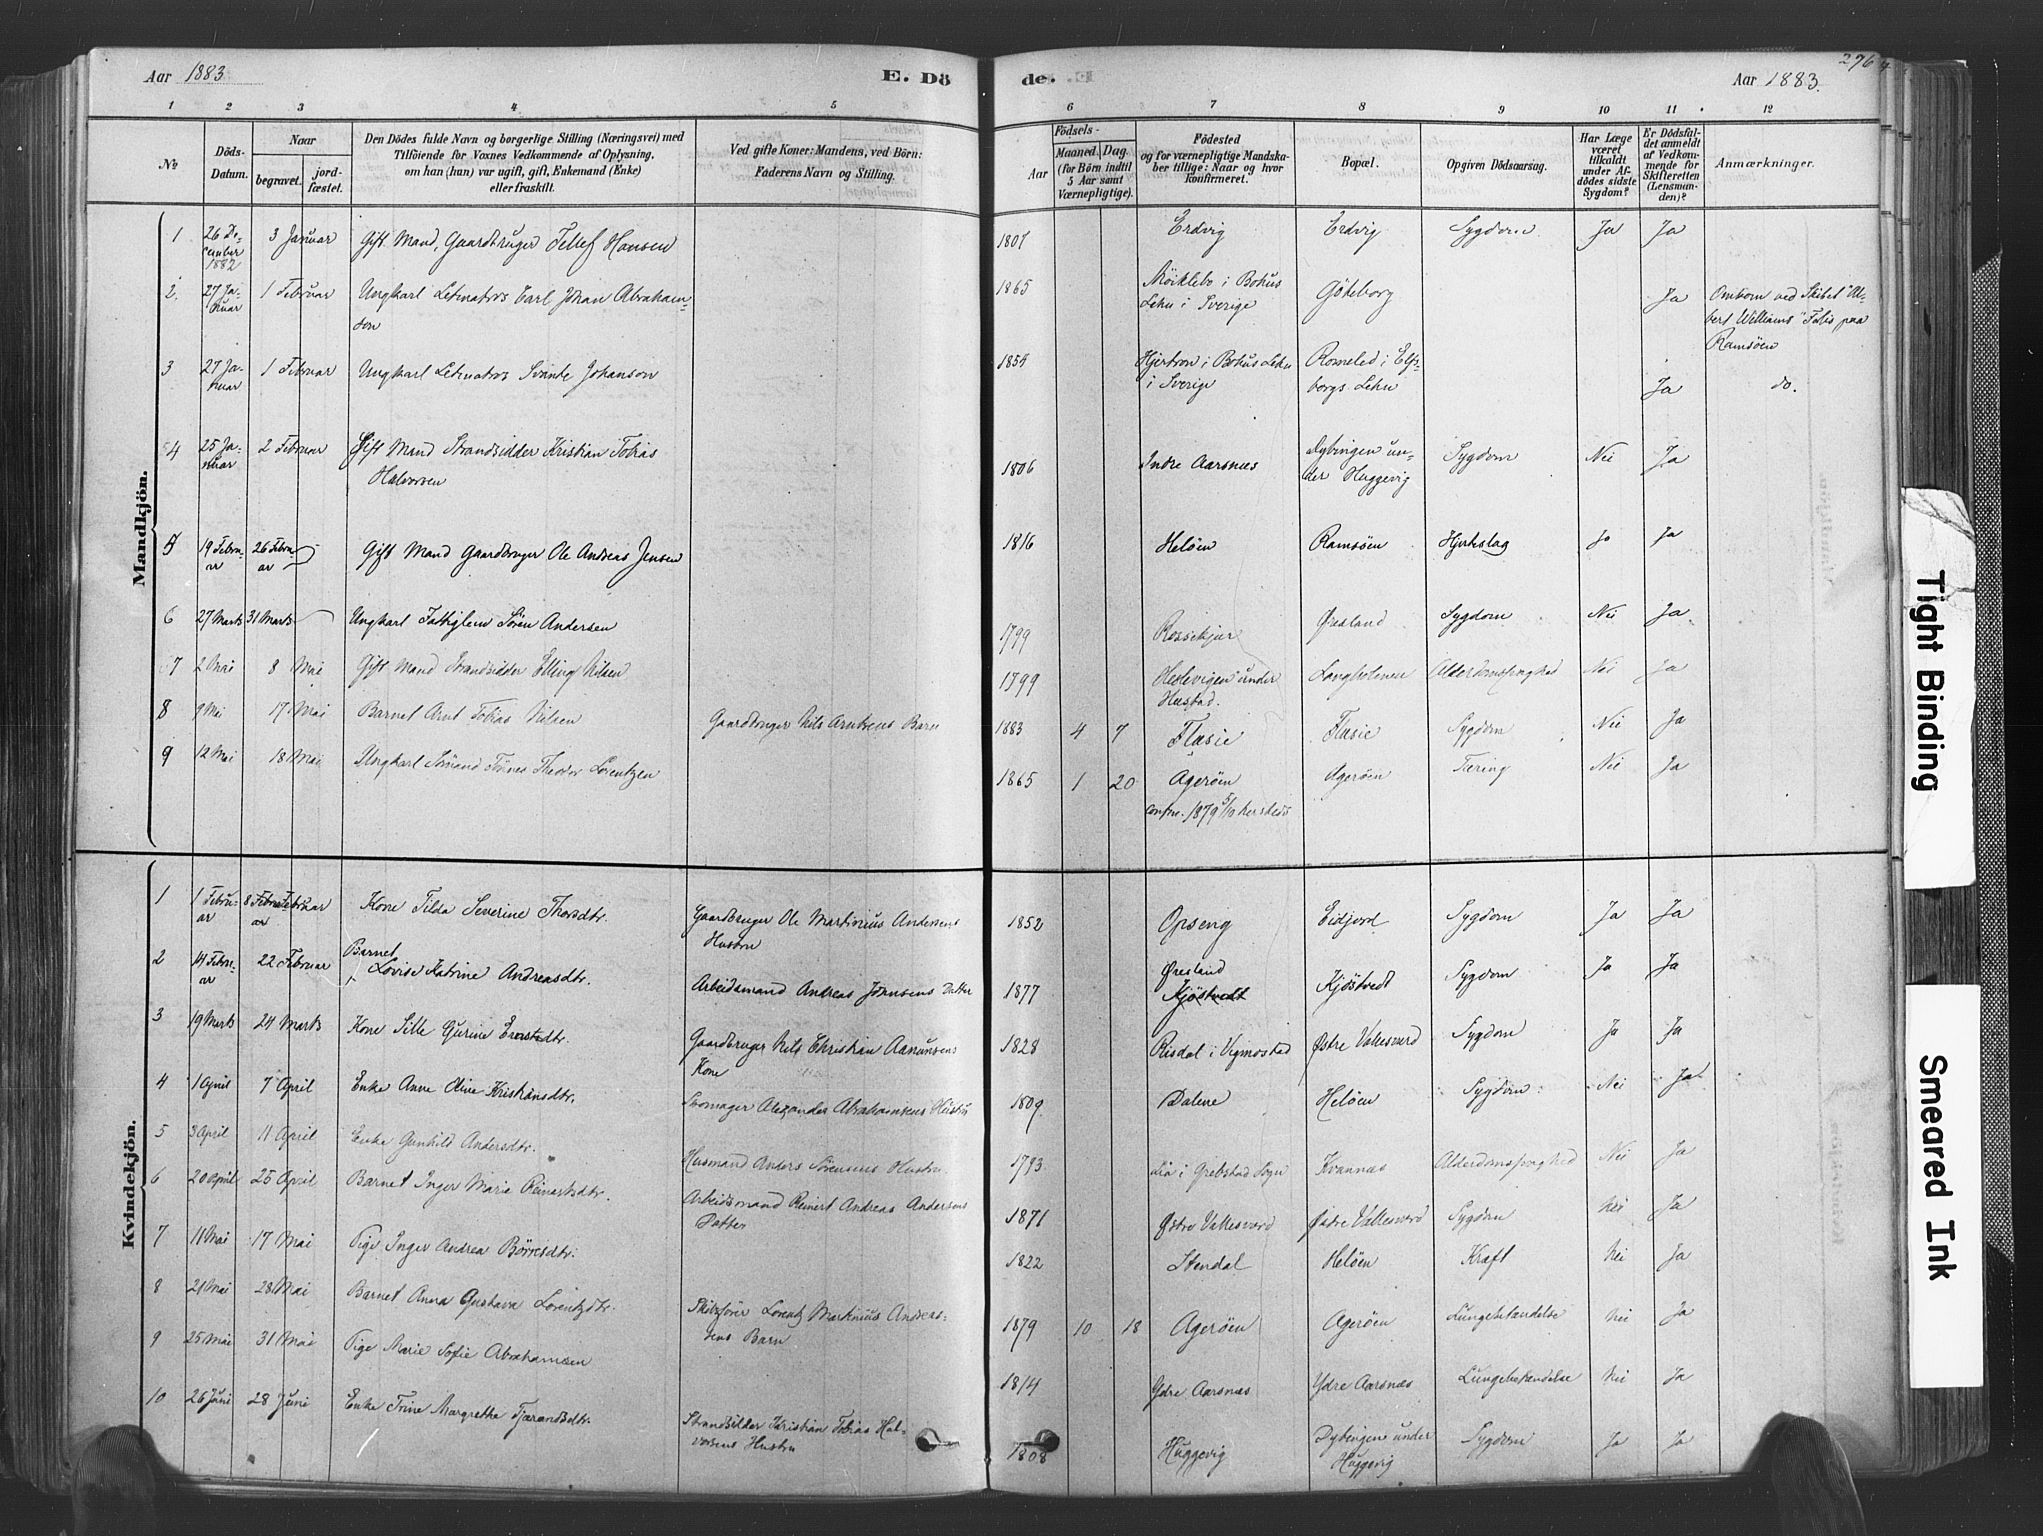 Aar 1883
E. Dö
de.
Aar 1883.
276
1 2 3 4 5 6 7 8 9 10 11 12
No
Döds-
Datum.
Naar
begravet.
jord-
fæstet.
Den Dödes fulde Navn og borgerlige Stilling (Næringsvei) med
Tilföiende for Voxnes Vedkommende af Oplysning,
om han (hun) var ugift, gift, Enkemand (Enke)
eller fraskilt.
Ved gifte Koner: Mandens, ved Börn:
Faderens Navn og Stilling.
Födsels-
Aar
Maaned. Dag
(for Börn indtil
5 Aar samt
Værnepligtige).
Födested
og for værnepligtige Mandska-
ber tillige: Naar og hvor
konfirmeret.
Bopæl.
Opgiven Dödsaarsag.
Har Læge
været
tilkaldt
under Af-
dödes sidste
Sygdom?
Er Dödsfal-
det anmeldt
af Vedkom-
mende for
Skifteretten
(Lensman-
den)?
Anmærkninger.
Mandkjön.
1 26 De- 3 Januar Gift Mand, Gaardbruger Tellef Hansen 1807 Erdvig Erdvig Sygdom Ja Ja
cember
1882
2. 27 Ja- 1 Februar Ungkarl Letmatros Carl Johan Abraham- 1865 i Bohus Göteborg Ja Omkom ved Skibet "Al-
nuar son Lehn i Sverige bert Williams" Forlis paa
Ramsöen
3 27 Ja- 1 Februar Ungkarl Letmatros Svante Johanson 1854 i Bohus Lehn Romeled i Elfs-
nuar i Sverige borgs Lehn Ja do.
4 25 Ja- 2 Februar Gift Mand Strandsidder Kristian Tobias 1806 Indre Aarsnæs Dybingen un- Sygdom Nei Ja
nuar Halvorsen der Huggevig
5 19 Febru- 26 Febru- Gift Mand Gaardbruger Ole Andreas Jensen 1816 Helöen Ramsöen Hjerteslag Ja Ja
ar ar
6 27 Marts 31 Marts Ungkarl Fattiglem Sören Andersen 1799 Rossekjær Øresland Sygdom Nei Ja
7 2 Mai 8 Mai Gift Mand Strandsidder Elling Nilsen 1799 under Langholmen Alderdomssvaghed Nei Ja
8 9 Mai 17 Mai Barnet Arnt Tobias Nilsen Gaardbruger Nils Arntsens Barn 1883 4 7 Flæsie Flæsie Sygdom Nei Ja
9 12 Mai 18 Mai Ungkarl Sömand Tönnes Theodor Lorentzen 1865 1 20 Agerøen Agerøen Tæring Nei Ja
confm. 1879 5/10
Kvindekjön.
1 1 Febru- 8 Febru- Februar Kone Tilda Severine Thorsdtr. Gaardbruger Ole Martinius Andersens 1852 Opseng Eidjord Sygdom Ja Ja
ar ar Hustru
2 14 Febru- 22 Februar Barnet Lovise Katrine Andreasdtr. Arbeidsmand Andreas Johnsens Datter 1877 Øresland Kjöstvedt Sygdom Ja Ja
ar Kjöstvedt
3 19 Marts 24 Marts Kone Sille Gurine Evertsdtr. Gaardbruger Nils Christian Aanunsens 1828 Risdal i Vigmostad Østre Vallesverd Sygdom Ja Ja
Kone
4 1 April 7 April Enke Anne Oline Kristiansdtr. Skomager Alexander Abrahamsens Hustru 1809 Dalene Helöen Sygdom Nei Ja
5 3 April 11 April Enke Gunhild Andersdtr. Husmand Anders Sørensens Hustru 1793 Lia i Grebstad Sogn Kvannæs Alderdomssvaghed Nei Ja
6 20 April 25 April Barnet Inger Marie Reinertsdtr. Arbeidsmand Reinert Andreas Andersens 1871 Østre Vallesverd Østre Vallesverd Sygdom Nei Ja
Datter
7 11 Mai 17 Mai Pige Inger Andrea Börresdtr. 1822 Stendal Helöen Kræft Nei Ja
8 21 Mai 28 Mai Barnet Anna Gustava Lorentzdtr. Skibsförer Lorentz Martinius Andreas- 1879 10 18 Agerøen Agerøen Lungebetændelse Nei Ja
sens Barn
9 25 Mai 31 Mai Pige Marie Sofie Abrahamsen 1814 Ydre Aarsnæs Ydre Aarsnæs Lungebetændelse Nei Ja
10 26 Juni 28 Juni Enke Trine Margrethe Tjærandsdtr. Strandsidder Kristian Tobias Hal- 1808 Huggevig Dybingene under Sygdom Ja Ja
vorsens Hustru Huggevig
Tight Binding
Smeared Ink